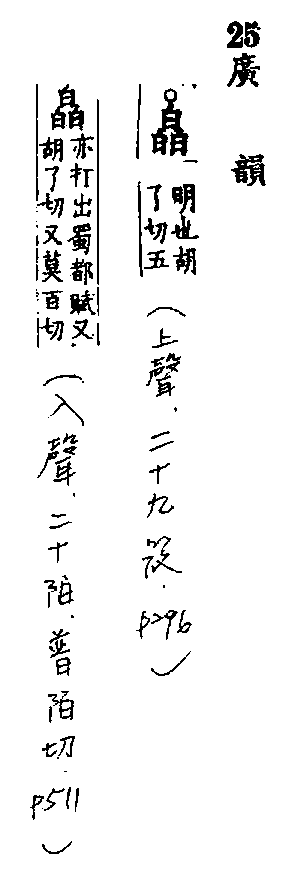 25廣韻
皛 明也胡了切五(上聲.二十九筱.p296)
皛 亦打出蜀都賦又胡了切又莫百切(入聲.二十陌.普陌切.p511)